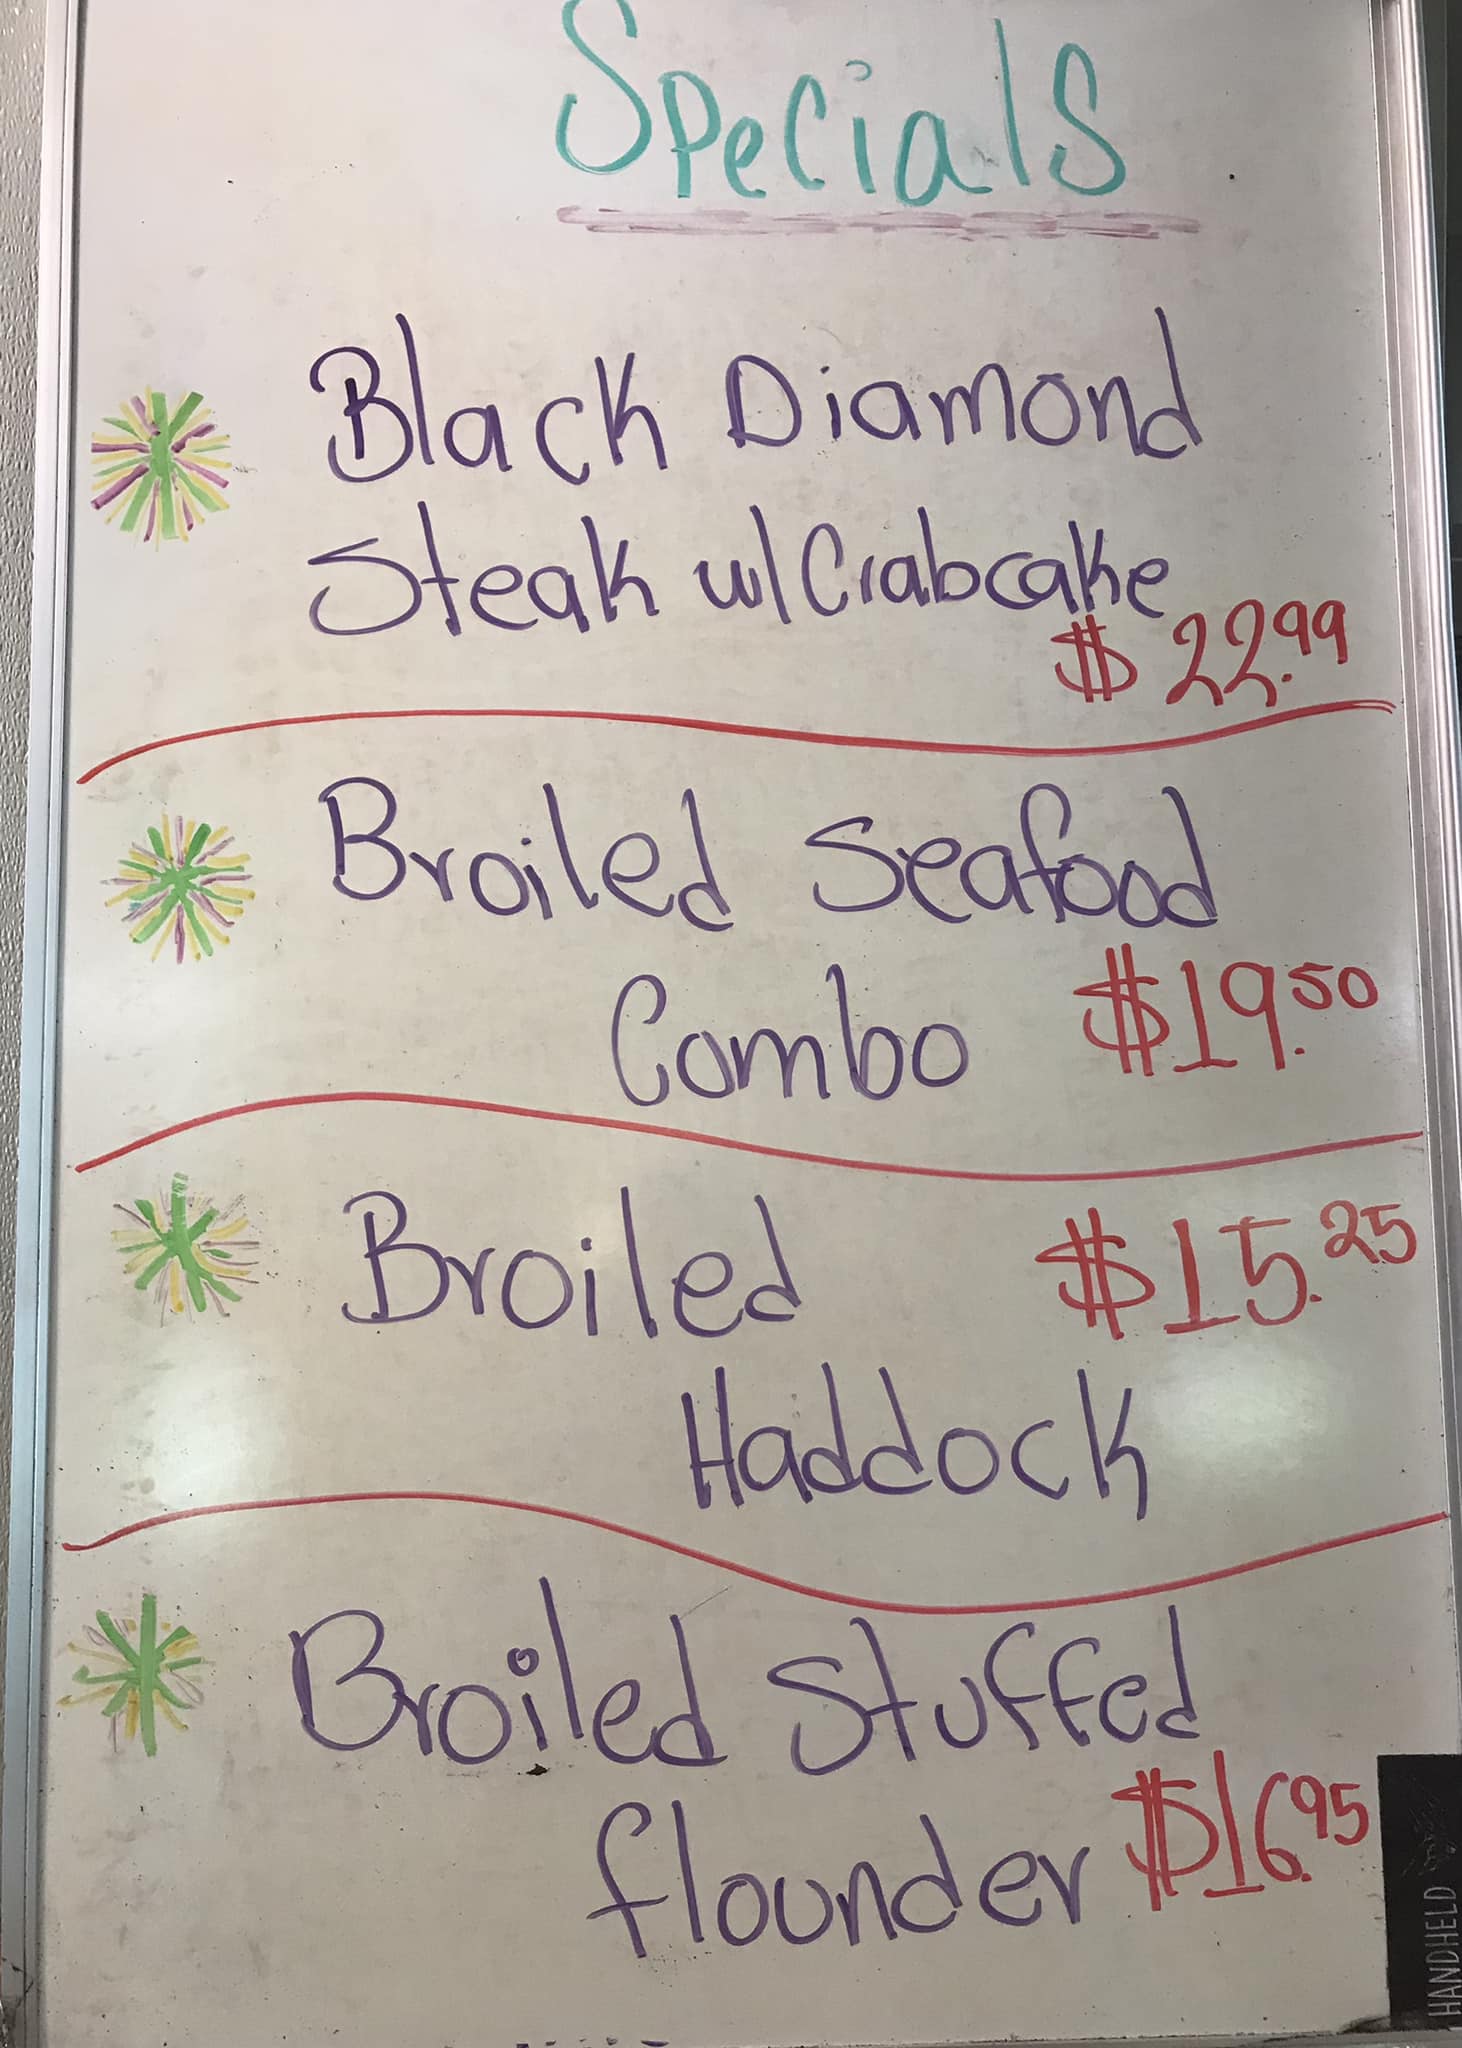 Specials
Black Diamond
Steak w/ Crabcake
$22.99
Broiled Seafood
Combo $19.50
Broiled $15.25
Haddock
Broiled Stuffed
flounder $16.95
HANDHELD